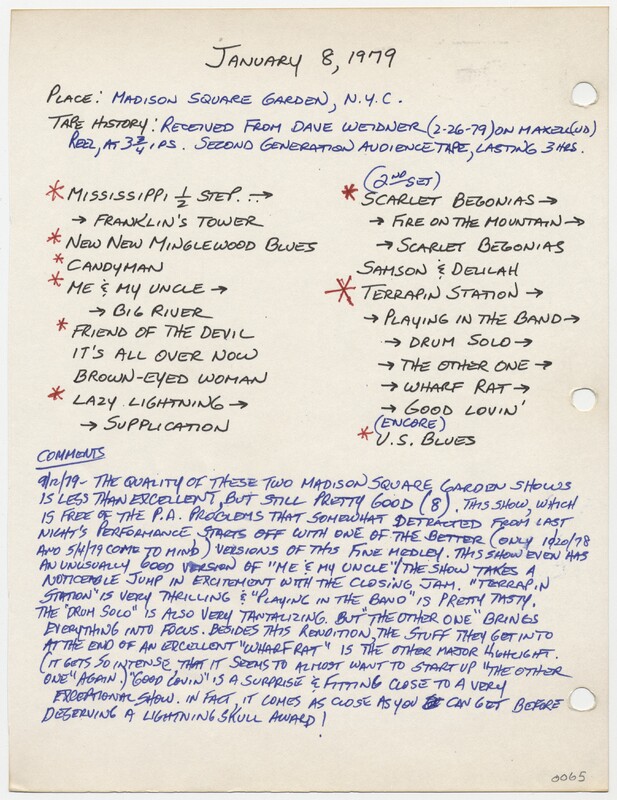 JANUARY 8, 1979
PLACE: MADISON SQUARE GARDEN, N.Y.C.
TAPE HISTORY: RECEIVED FROM DAVE WEIDNER (2-26-79) ON MAXELL (UD)
REEL, AT 3 3/4 IPS. SECOND GENERATION AUDIENCE TAPE, LASTING 3 HRS.
* MISSISSIPPI 1/2 STEP →
→ FRANKLIN'S TOWER
* NEW NEW MINGLEWOOD BLUES
* CANDYMAN
* ME & MY UNCLE →
→ BIG RIVER
* FRIEND OF THE DEVIL
IT'S ALL OVER NOW
BROWN-EYED WOMAN
* LAZY LIGHTNING →
→ SUPPLICATION
(2ND SET)
* SCARLET BEGONIAS →
→ FIRE ON THE MOUNTAIN →
→ SCARLET BEGONIAS
SAMSON & DELILAH
* TERRAPIN STATION →
→ PLAYING IN THE BAND →
→ DRUM SOLO →
→ THE OTHER ONE →
→ WHARF RAT →
→ GOOD LOVIN'
(ENCORE)
* U.S. BLUES
COMMENTS
9/12/79- THE QUALITY OF THESE TWO MADISON SQUARE GARDEN SHOWS
IS LESS THAN EXCELLENT, BUT STILL PRETTY GOOD (8). THIS SHOW, WHICH
IS FREE OF THE P.A. PROBLEMS THAT SOMEWHAT DETRACTED FROM LAST
NIGHT'S PERFORMANCE STARTS OFF WITH ONE OF THE BETTER (ONLY
AND COME TO MIND) VERSIONS OF THIS FINE MEDLEY. THIS SHOW EVEN HAS
AN UNUSUALLY GOOD VERSION OF "ME & MY UNCLE"! THE SHOW TAKES A
NOTICEABLE JUMP IN EXCITEMENT WITH THE CLOSING JAM. "TERRAPIN
STATION" IS VERY THRILLING & "PLAYING IN THE BAND" IS PRETTY TASTY.
THE "DRUM SOLO" IS ALSO VERY TANTALIZING. BUT "THE OTHER ONE" BRINGS
EVERYTHING INTO FOCUS. BESIDES THIS RENDITION, THE STUFF THEY GET INTO
AT THE END OF AN EXCELLENT "WHARF RAT" IS THE OTHER MAJOR HIGHLIGHT.
(IT GETS SO INTENSE THAT IT SEEMS TO ALMOST WANT TO START UP "THE OTHER
ONE" AGAIN.) "GOOD LOVIN'" IS A SURPRISE & FITTING CLOSE TO A VERY
EXCEPTIONAL SHOW. IN FACT, IT COMES AS CLOSE AS YOU CAN GET BEFORE
DESERVING A LIGHTNING SKULL AWARD!
0065